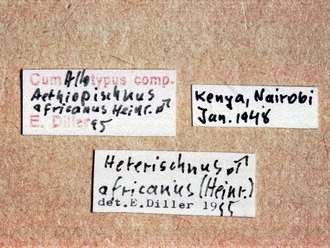 Cum Allotypus comp.
Aethiopischnus
africanus Heinr. ♂
E. Diller 95
Kenya, Nairobi
Jan. 1948
Heterischnus ♂
africanus (Heinr.)
det. E. Diller 1995